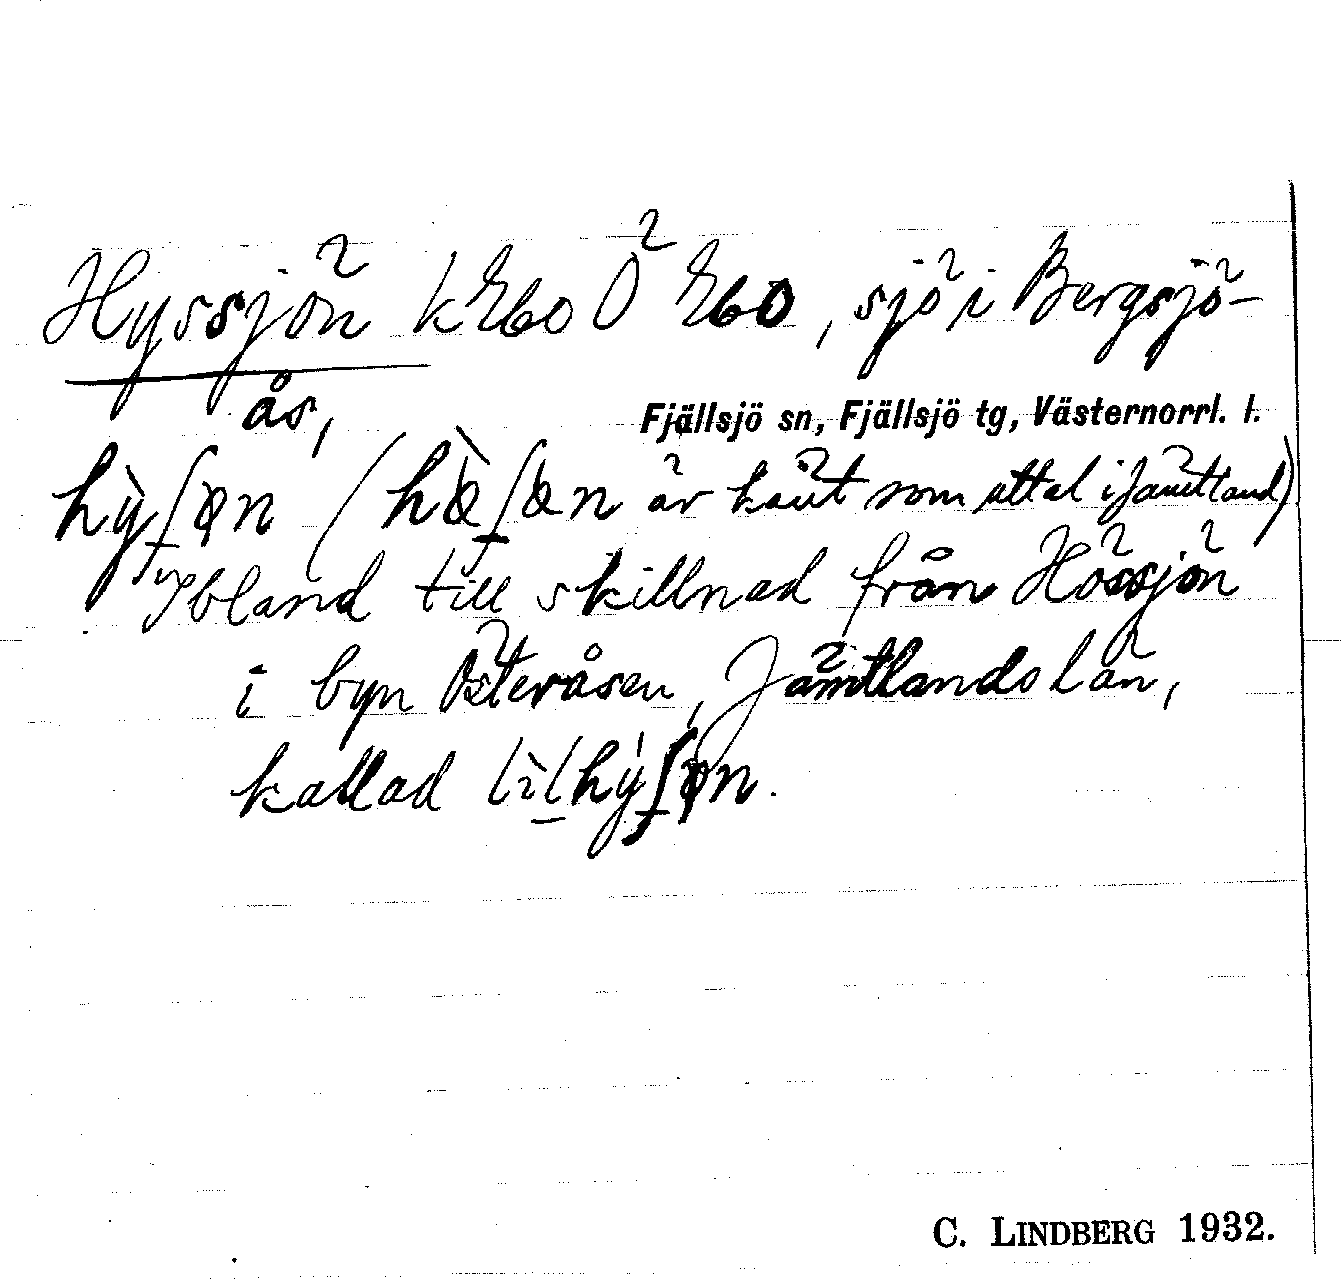 Hyssjön k860 Ö 860, sjö i Bergsjö-
ås,
Fjällsjö sn, Fjällsjö tg, Västernorrl. l.
hỳʃøn (hœ̀ʃøn är känt som uttal i Jämtland)
Ibland till skillnad från Hössjön
i byn Österåsen, Jämtlands län,
kallad lìlhýʃøn.
C. LINDBERG 1932.